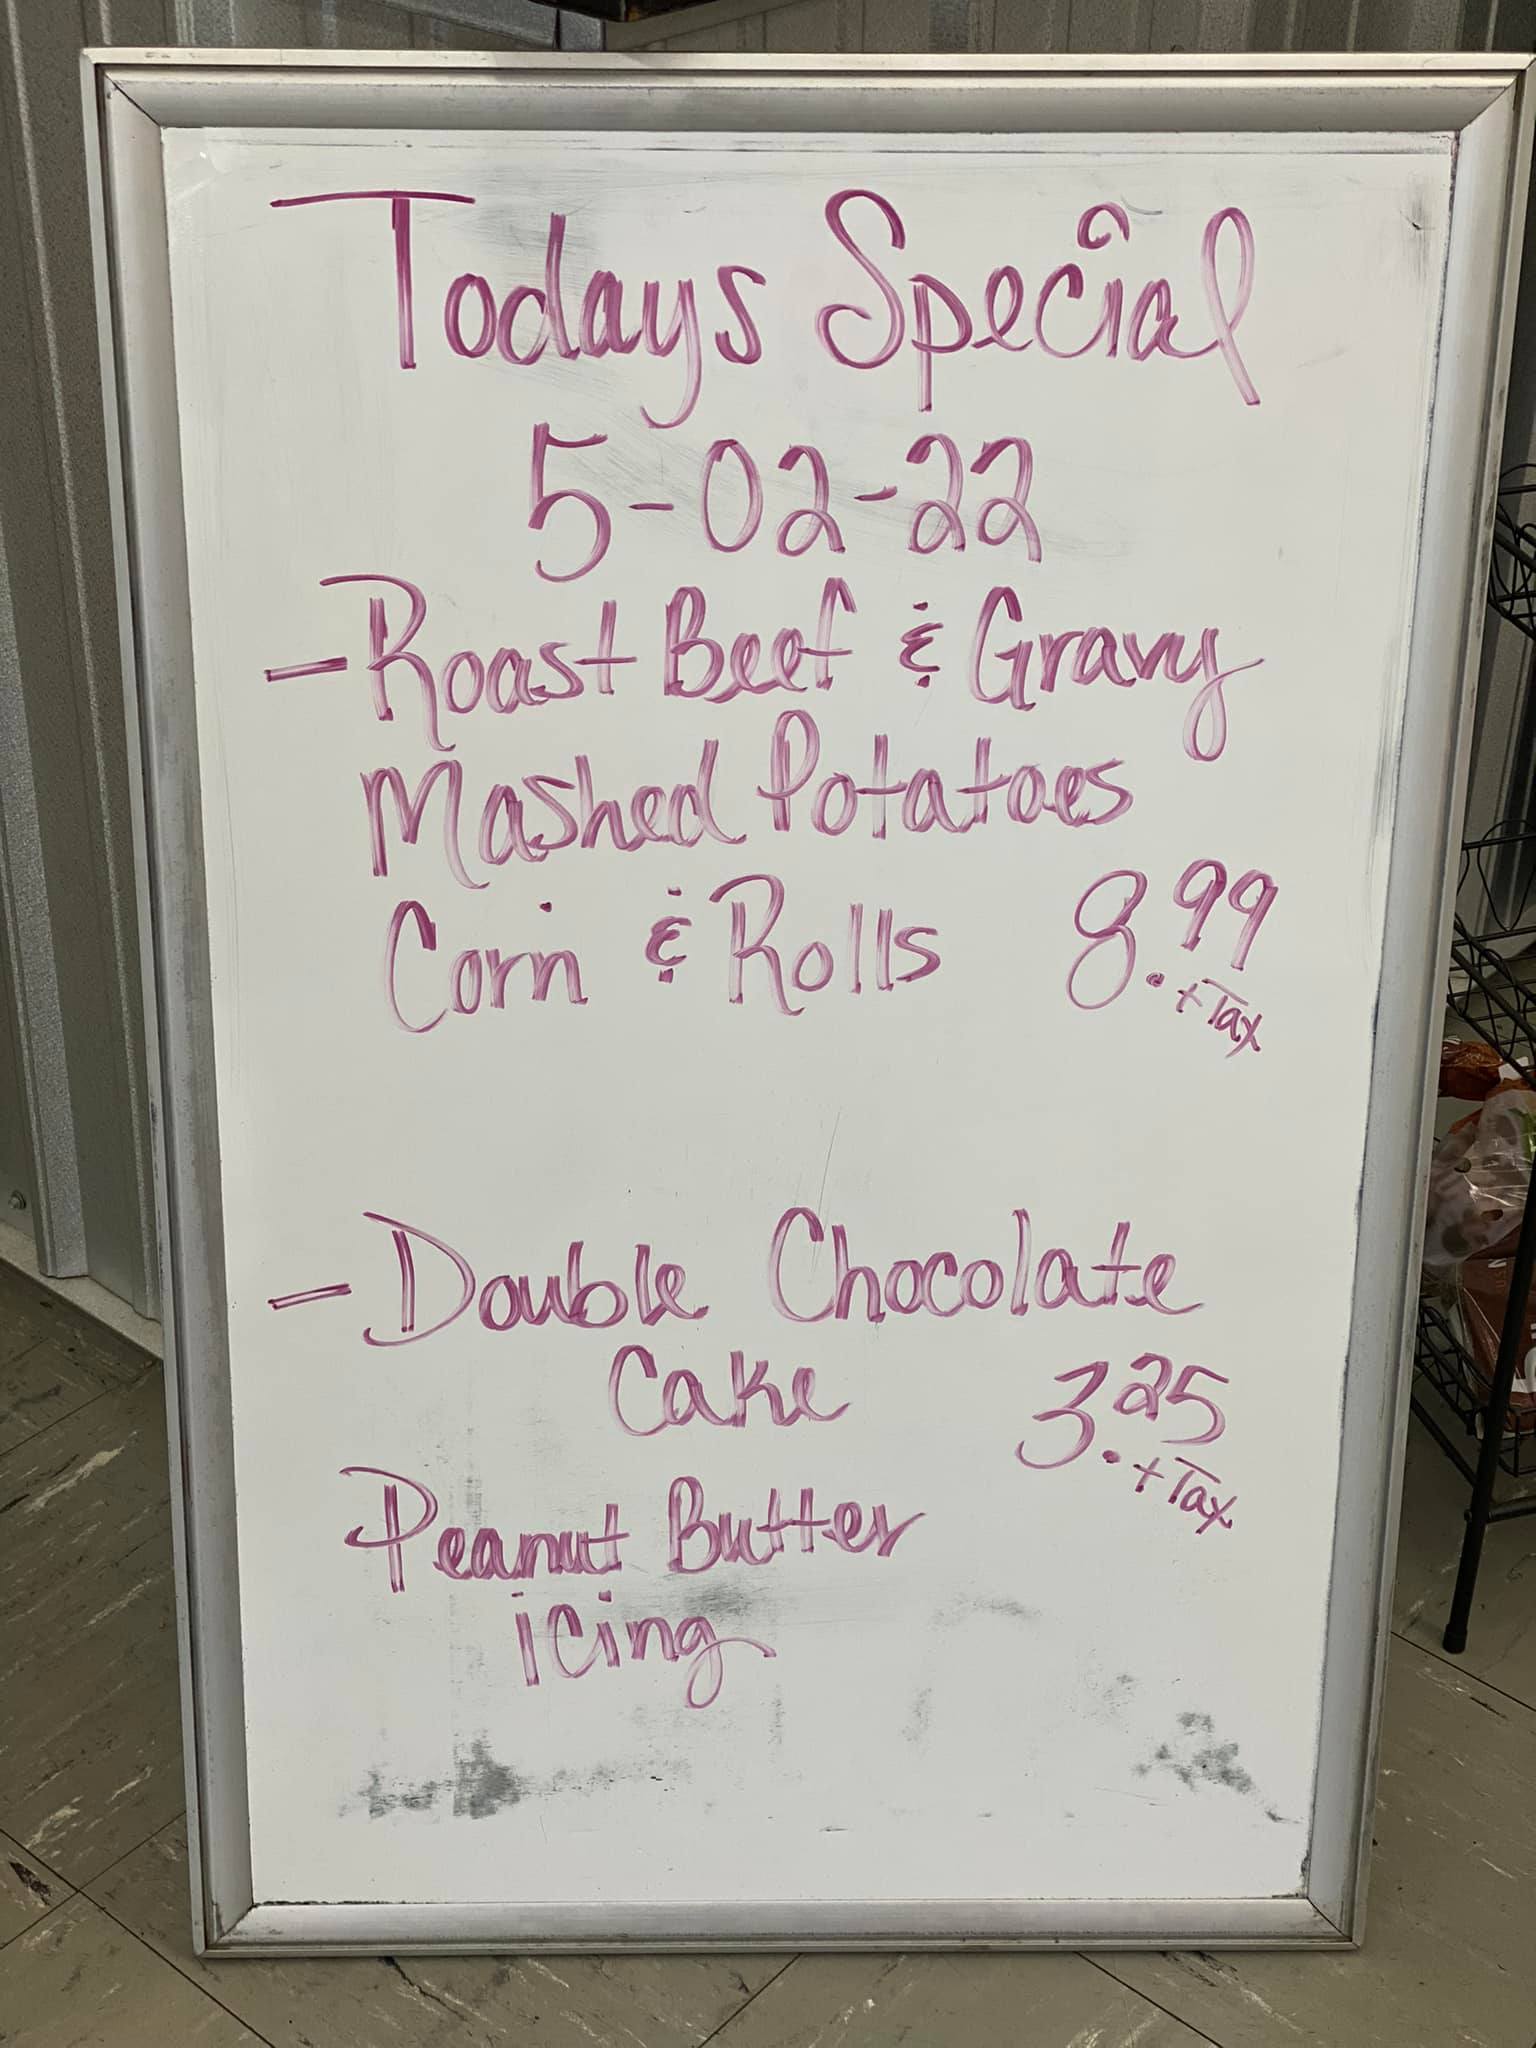 Todays Special
5-02-22
- Roast Beef & Gravy
Mashed Potatoes
Corn & Rolls 8.99
+ Tax
- Double Chocolate
Cake 3.25
+ Tax
Peanut Butter
icing